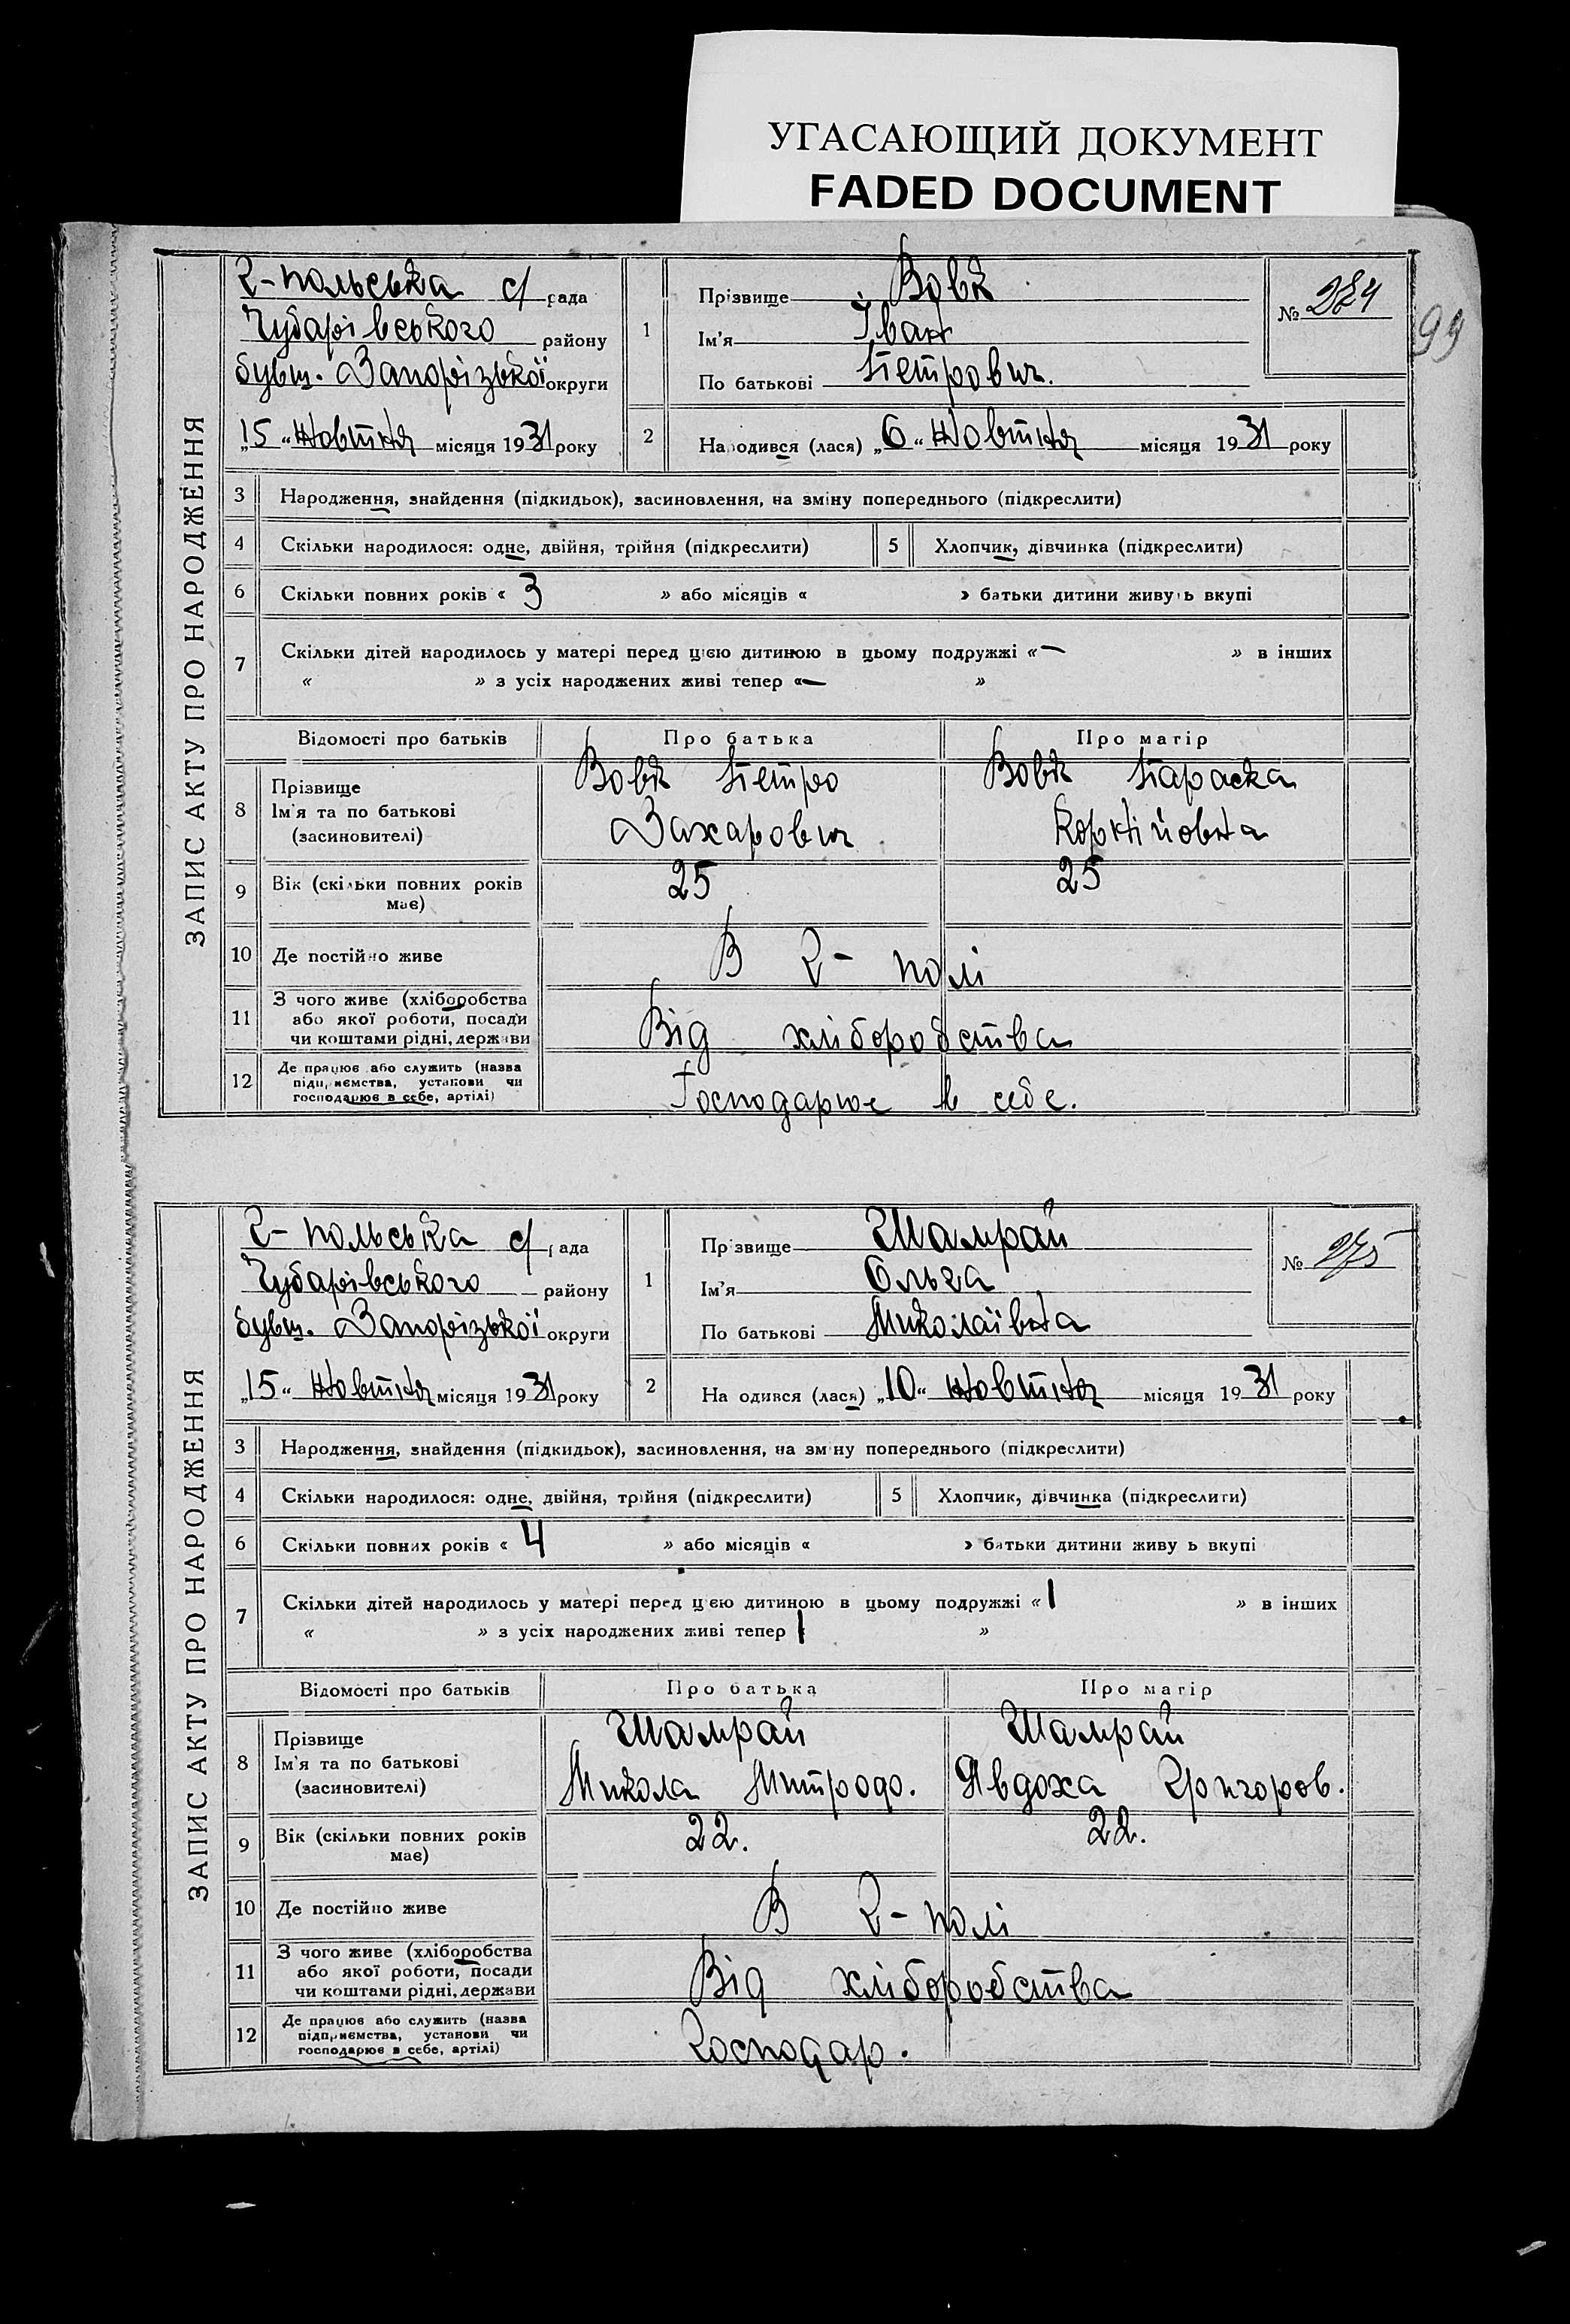 УГАСАЮЩИЙ ДОКУМЕНТ
FADED DOCUMENT
99
ЗАПИС АКТУ ПРО НАРОДЖЕННЯ
Г-польська с/рада
Чубарівського району
бувш. Запорізької округи
„15“ Новтня місяця 1931 року
1
Прізвище Вовк
Ім'я Іван
По батькові Петрович.
№ 274
2
Народився (лася) „6“ Новтня місяця 1931 року
3 Народження, знайдення (підкидьок), засиновлення, на зміну попереднього (підкреслити)
4 Скільки народилося: одне, двійня, трійня (підкреслити) 5 Хлопчик, дівчинка (підкреслити)
6 Скільки повних років « 3 » або місяців « » батьки дитини живуть вкупі
7 Скільки дітей народилось у матері перед цією дитиною в цьому подружжі «— » в інших
« » з усіх народжених живі тепер «— »
Відомості про батьків Про батька Про матір
8 Прізвище
Ім'я та по батькові
(засиновителі)
Вовк Петро
Захарович
Вовк Параска
Корнійовна
9 Вік (скільки повних років
має)
25 25
10 Де постійно живе В Г- полі
11 З чого живе (хліборобства
або якої роботи, посади
чи коштами рідні, держави
Від хліборобства
12 Де працює або служить (назва
підприємства, установи чи
господарює в себе, артілі)
Господарює в себе.
ЗАПИС АКТУ ПРО НАРОДЖЕННЯ
Г-польська с/рада
Чубарівського району
бувш. Запорізької округи
„15“ Новтня місяця 1931 року
1
Прізвище Шамрай
Ім'я Ольга
По батькові Миколаївна
№ 275
2
Народився (лася) „10“ Новтня місяця 1931 року
3 Народження, знайдення (підкидьок), засиновлення, на зміну попереднього (підкреслити)
4 Скільки народилося: одне, двійня, трійня (підкреслити) 5 Хлопчик, дівчинка (підкреслити)
6 Скільки повних років « 4 » або місяців « » батьки дитини живуть вкупі
7 Скільки дітей народилось у матері перед цією дитиною в цьому подружжі « 1 » в інших
« » з усіх народжених живі тепер 1 »
Відомості про батьків Про батька Про матір
8 Прізвище
Ім'я та по батькові
(засиновителі)
Шамрай
Микола Митродо.
Шамрай
Явдоха Григоров.
9 Вік (скільки повних років
має)
22. 22.
10 Де постійно живе В Г- полі
11 З чого живе (хліборобства
або якої роботи, посади
чи коштами рідні, держави
Від хліборобства
12 Де працює або служить (назва
підприємства, установи чи
господарює в себе, артілі)
Господар.